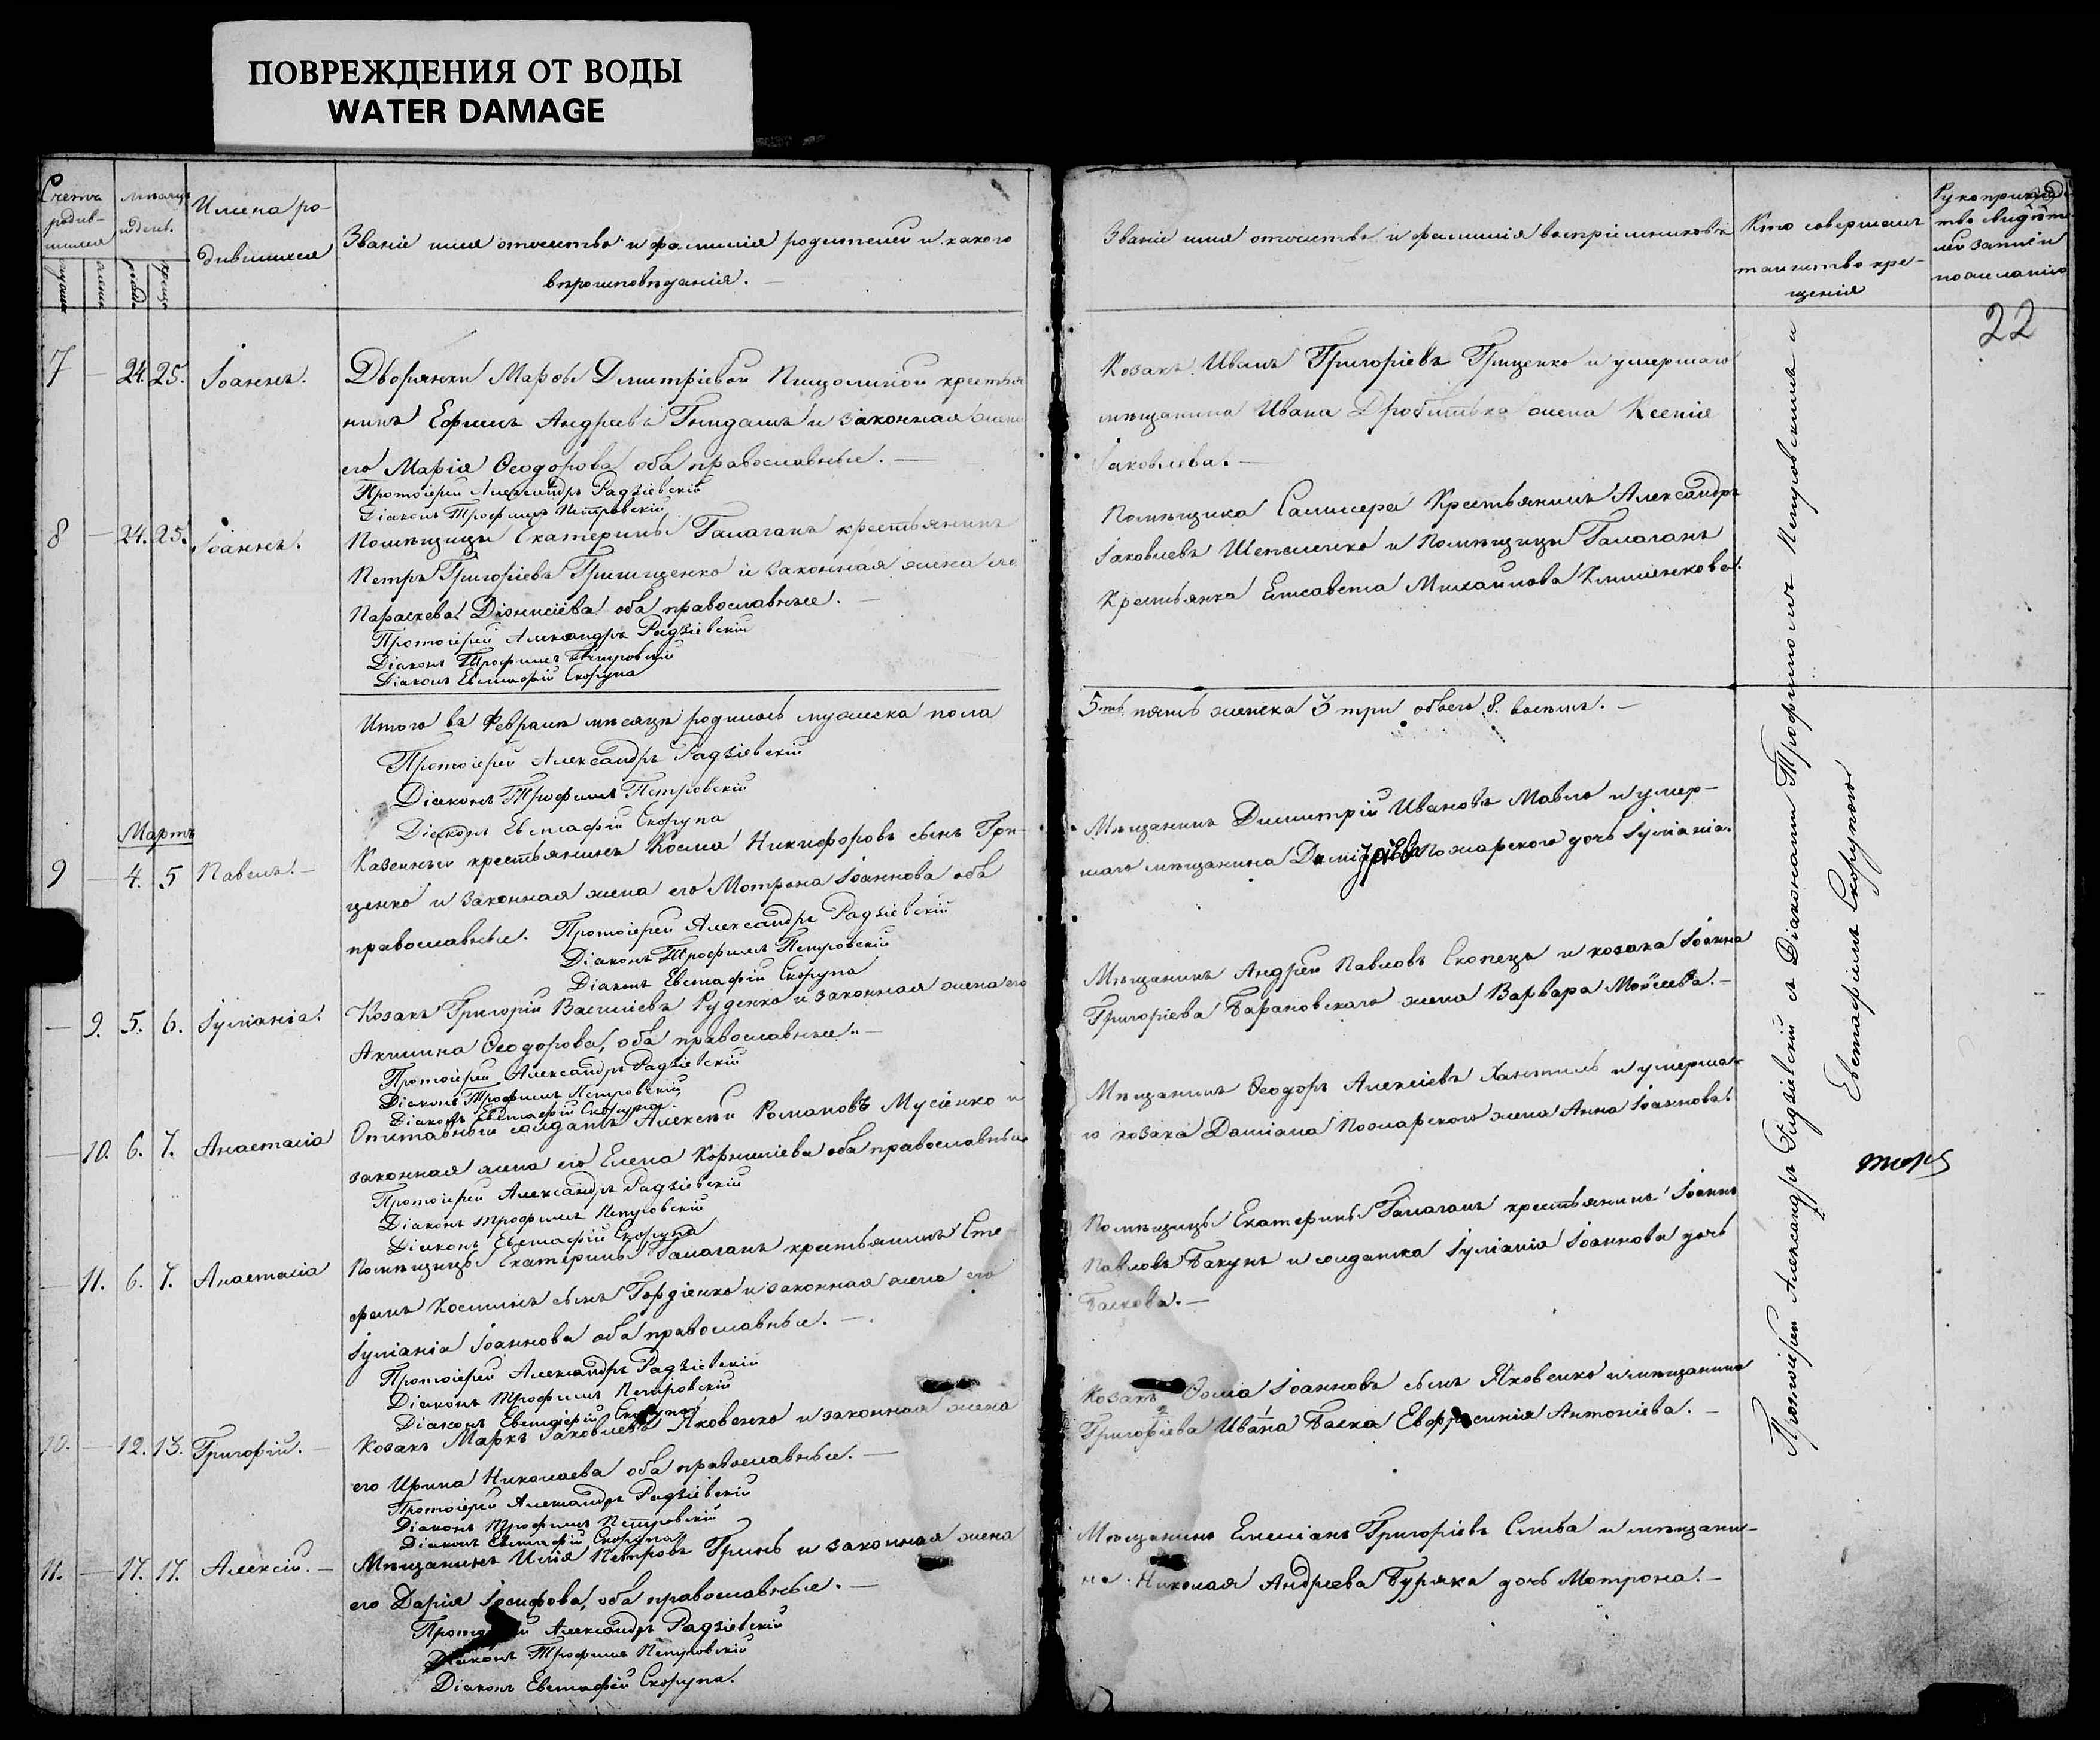 ПОВРЕЖДЕНИЯ ОТ ВОДЫ
WATER DAMAGE
Счетъ родившихся
мѣсяцъ и день.
Имена родившихся
Званіе имя отчество и фамилія родителей и какого
вѣроисповѣданія. —
Званіе имя отчество и фамилія воспріемниковъ
Кто совершалъ
таинство кре-
щенія
Рукоприкладс-
тво свидѣте-
лей записи
по желанію
22
7 — 24. 25. Іоаннъ.
Дворянки Марѳы Димитріевой крестья
нинъ Ефимъ Андреевъ и законная жена
его Марія Ѳеодорова оба православные. —
Протоіерей Александръ Радзіевскій
Діаконъ Трофимъ Петровскій
Козакъ Иванъ Григоріевъ Грищенко и умершаго
мѣщанина Ивана жена Ксенія
Іаковлева. —
8 — 24. 25. Іоаннъ.
Помѣщицы Екатерины Галаганъ крестьянинъ
Петръ Григоріевъ и законная жена его
Параскева Діонисіева оба православные. —
Протоіерей Александръ Радзіевскій
Діаконъ Трофимъ Петровскій
Діаконъ Евстафій Скорупа
Помѣщика Крестьянинъ Александръ
Іаковлевъ и Помѣщицы Галаганъ
Крестьянка Елисавета Михайлова
Итого въ Февралѣ мѣсяцѣ родилось мужеска пола
5ть пять женска 3 три обоего 8. восемь. —
Протоіерей Александръ Радзіевскій
Діаконъ Трофимъ Петровскій
Діаконъ Евстафій Скорупа
Мартъ
9 — 4. 5 Павелъ. —
Казенный крестьянинъ Косма Никифоровъ сынъ Гри-
ценко и законная жена его Мотрона Іоаннова оба
православные. Протоіерей Александръ Радзіевскій
Діаконъ Трофимъ Петровскій
Діаконъ Евстафій Скорупа
Мѣщанинъ Димитрій Ивановъ и умер-
шаго мѣщанина Пожарского дочь Іуліанія.
— 9. 5. 6. Іуліанія.
Козакъ Григорій Василіевъ Руденко и законная жена его
Акилина Ѳеодорова, оба православные. —
Протоіерей Александръ Радзіевскій
Діаконъ Трофимъ Петровскій
Діаконъ Евстафій Скорупа.
Мѣщанинъ Андрей Павловъ Скопецъ и козака Іоанна
Григоріева Барановского жена Варвара Моѵсеева. —
— 10. 6. 7. Анастасія
Отставный солдатъ Алексѣй Романовъ Мусіенко и
законная жена его Елена Корниліева оба православные
Протоіерей Александръ Радзіевскій
Діаконъ Трофимъ Петровскій
Діаконъ Евстафій Скорупа
Мѣщанинъ Ѳеодоръ Алексіевъ и умерша-
го козака Даміана Пожарского жена Анна Іоаннова.
— 11. 6. 7. Анастасія
Помѣщицы Екатерины Галаганъ крестьянинъ Сте-
фанъ Косминъ сынъ Гордіенко и законная жена его
Іуліанія Іоаннова оба православные. —
Протоіерей Александръ Радзіевскій
Діаконъ Трофимъ Петровскій
Діаконъ Евстафій Скорупа
Помѣщицы Екатерины Галаганъ крестьянинъ Іоаннъ
Павловъ Бакунъ и солдатка Іуліанія Іоаннова дочь
Баскова. —
10. — 12. 13. Григорій. —
Козакъ Маркъ Іаковлевъ Яковенко и законная жена
его Ирина Николаева оба православные. —
Протоіерей Александръ Радзіевскій
Діаконъ Трофимъ Петровскій
Діаконъ Евстафій Скорупа
Козакъ Ѳома Іоанновъ сынъ Яковенко и мѣщанина
Григоріева Ивана Баска Евфросинія Антоніева. —
11. — 17. 17. Алексій. —
Мѣщанинъ Илія Петровъ Гринь и законная жена
его Дарія Іосифова, оба православные. —
Протоіерей Александръ Радзіевскій
Діаконъ Трофимъ Петровскій
Діаконъ Евстафій Скорупа.
Мѣщанинъ Емеліанъ Григоріевъ Слива и мѣщани-
на Николая Андреева Буряка дочь Мотрона. —
Протоіерей Александръ Радзіевскій съ Діаконами Трофимомъ Петровскимъ и
Евстафіемъ Скорупою